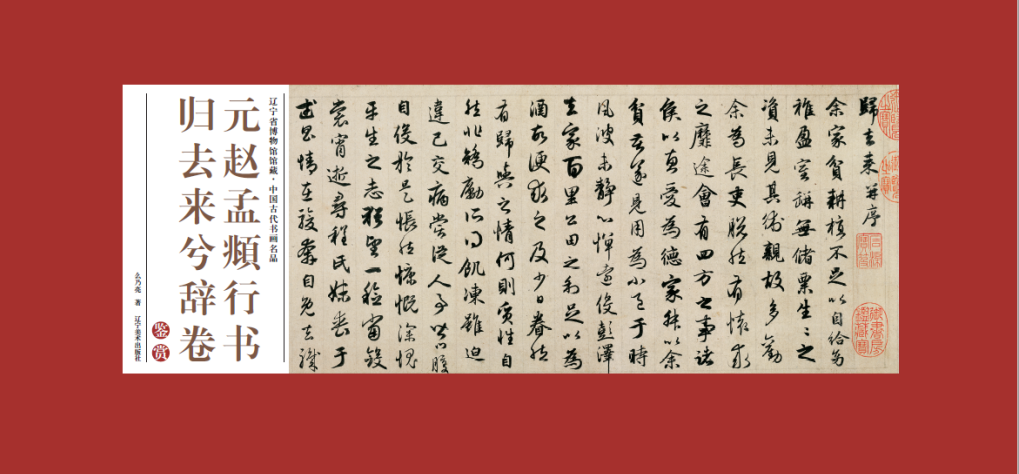 辽宁省博物馆馆藏·中国古代书画名品
元赵孟頫行书
归去来兮辞卷
鉴赏
幺乃亮 著 辽宁美术出版社
歸去來并序
余家貧耕植不足以自給幼
稚盈室缾無儲粟生〻之
資未見其術親故多勸
余為長吏脱然有懷求
之靡途會有四方之事諸
侯以惠愛為德家叔以余
貧苦遂見用為小邑于時
風波未靜心憚遠役彭澤
去家百里公田之利足以為
酒故便求之及少日眷然
有歸與之情何則質性自
然非矯勵所得飢凍雖迫
違己交病嘗從人事皆口腹
自役於是悵然慷慨深愧
平生之志猶望一稔當斂
裳宵逝尋程氏妹喪于
武昌情在駿奔自免去職